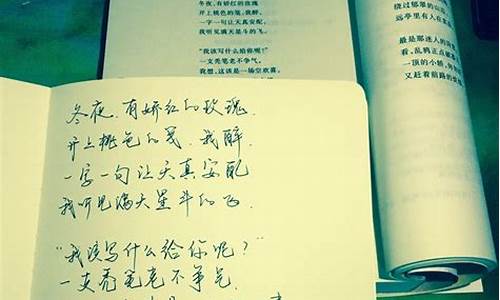 冬夜，有娇红的玫瑰
开上桃色的笺，我醉，
一字一句让天真安配，
我听见满天星斗的飞。
“我该写什么给你呢？”
一支秃笔老不争气。
我想，这该是一场空欢喜，
绕过郁翠的山
远亭里有人在
最是那迷人的
看，乱鸦正点
一顶的小轿，
又赶着前路的
冬夜，有娇红的玫瑰
开上桃色的笺，我醉
一字一句让天真安配
我听见满天星斗的飞
“我该写什么给你呢？”
一支秃笔老不争气